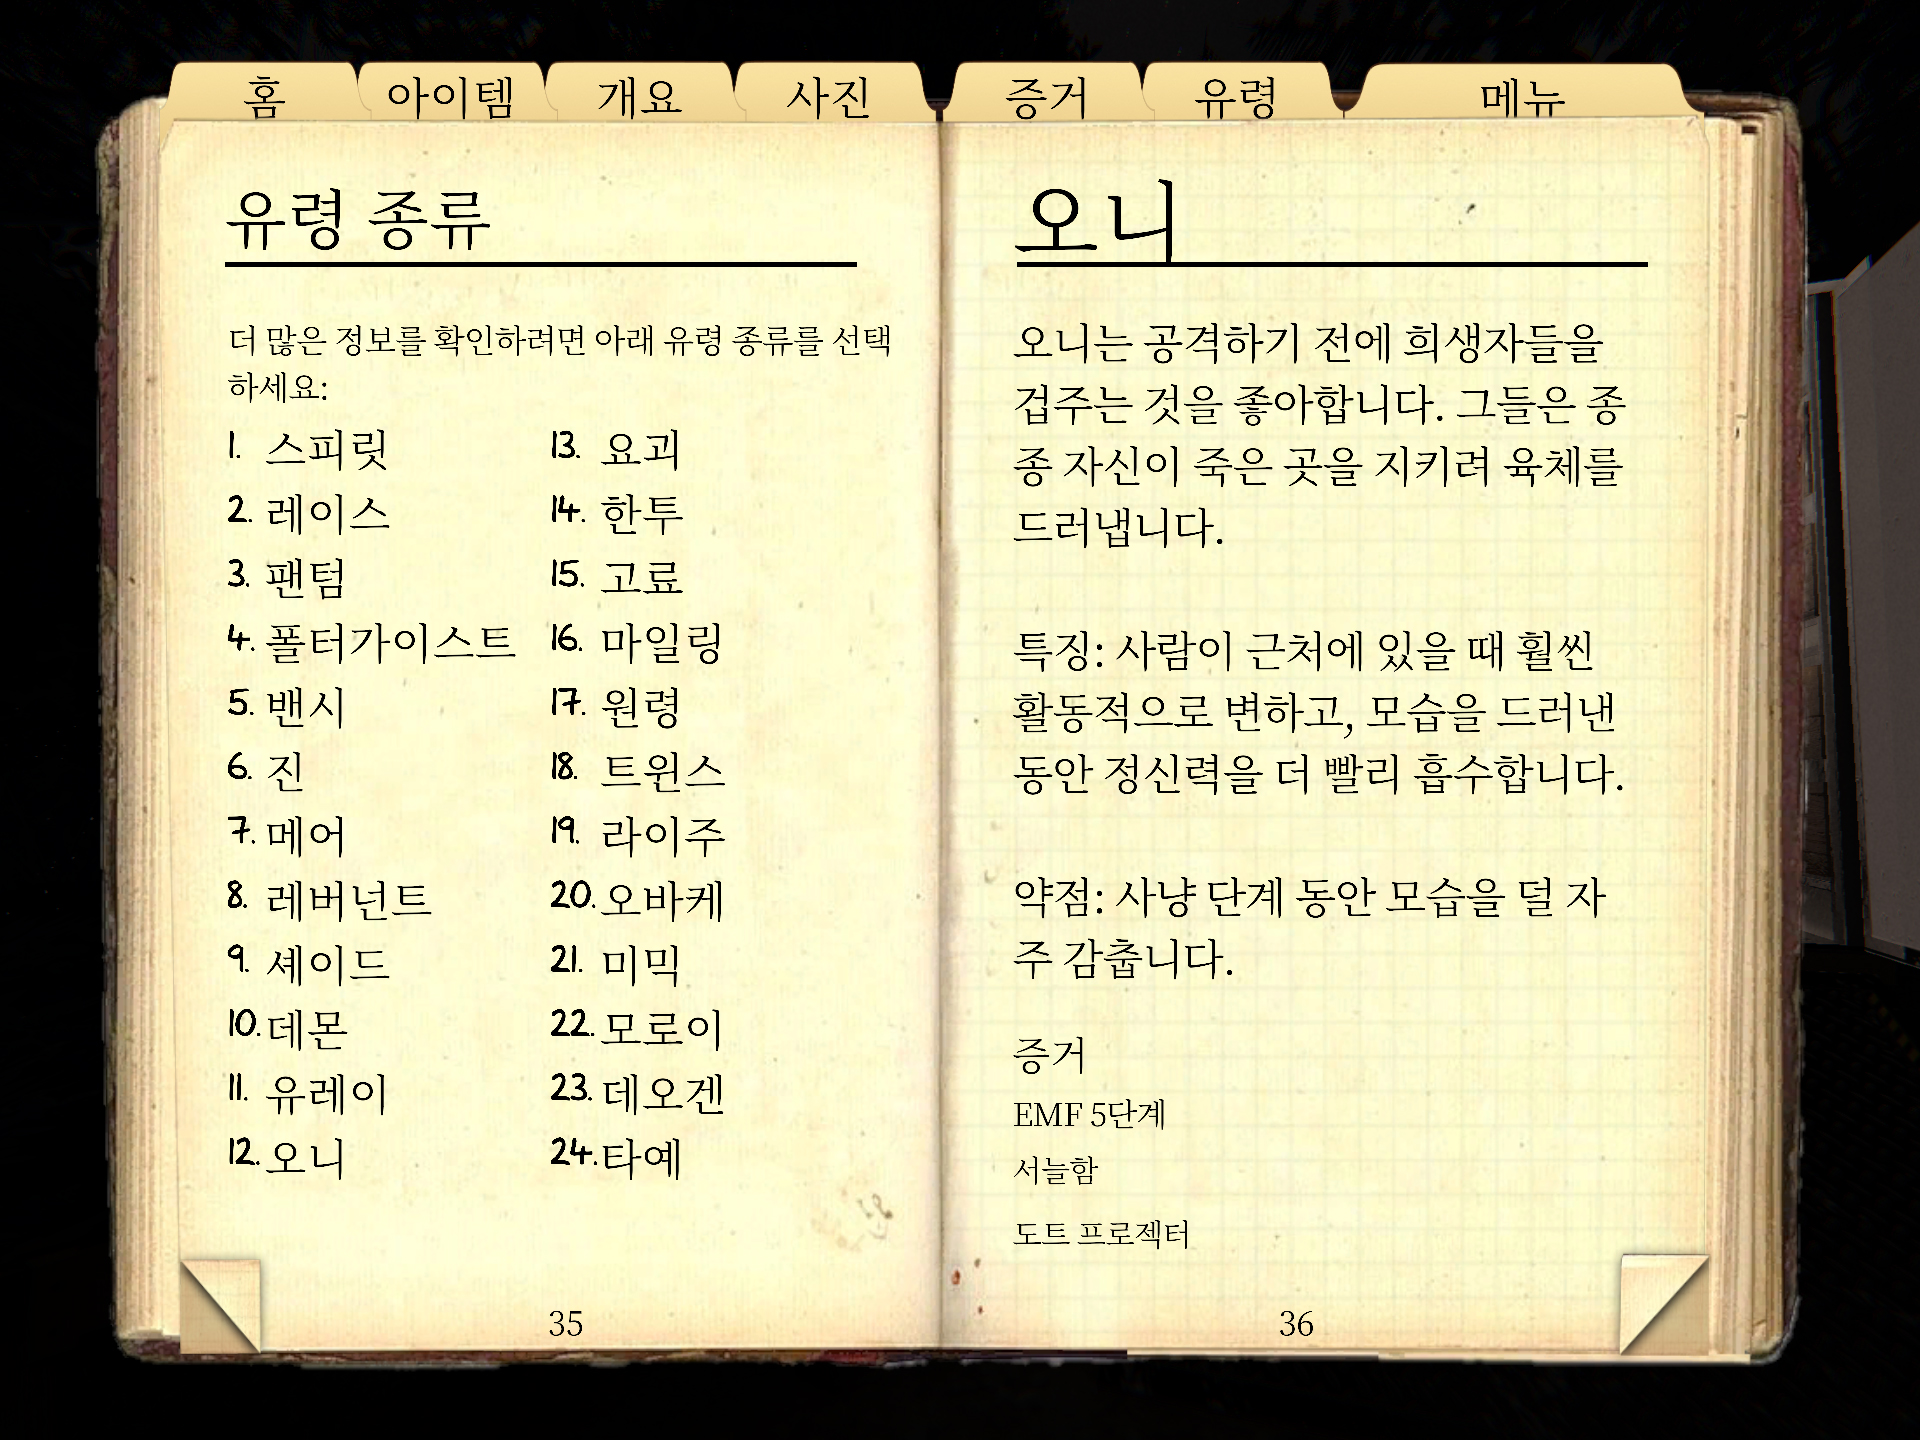 홈
아이템
개요
사진
증거
유령
메뉴
유령 종류
더 많은 정보를 확인하려면 아래 유령 종류를 선택
하세요:
1. 스피릿
2. 레이스
3. 팬텀
4. 폴터가이스트
5. 밴시
6. 진
7. 메어
8. 레버넌트
9. 셰이드
10. 데몬
11. 유레이
12. 오니
13. 요괴
14. 한투
15. 고료
16. 마일링
17. 원령
18. 트윈스
19. 라이주
20. 오바케
21. 미믹
22. 모로이
23. 데오겐
24. 타예
35
오니
오니는 공격하기 전에 희생자들을
겁주는 것을 좋아합니다. 그들은 종
종 자신이 죽은 곳을 지키려 육체를
드러냅니다.
특징: 사람이 근처에 있을 때 훨씬
활동적으로 변하고, 모습을 드러낸
동안 정신력을 더 빨리 흡수합니다.
약점: 사냥 단계 동안 모습을 덜 자
주 감춥니다.
증거
EMF 5단계
서늘함
도트 프로젝터
36